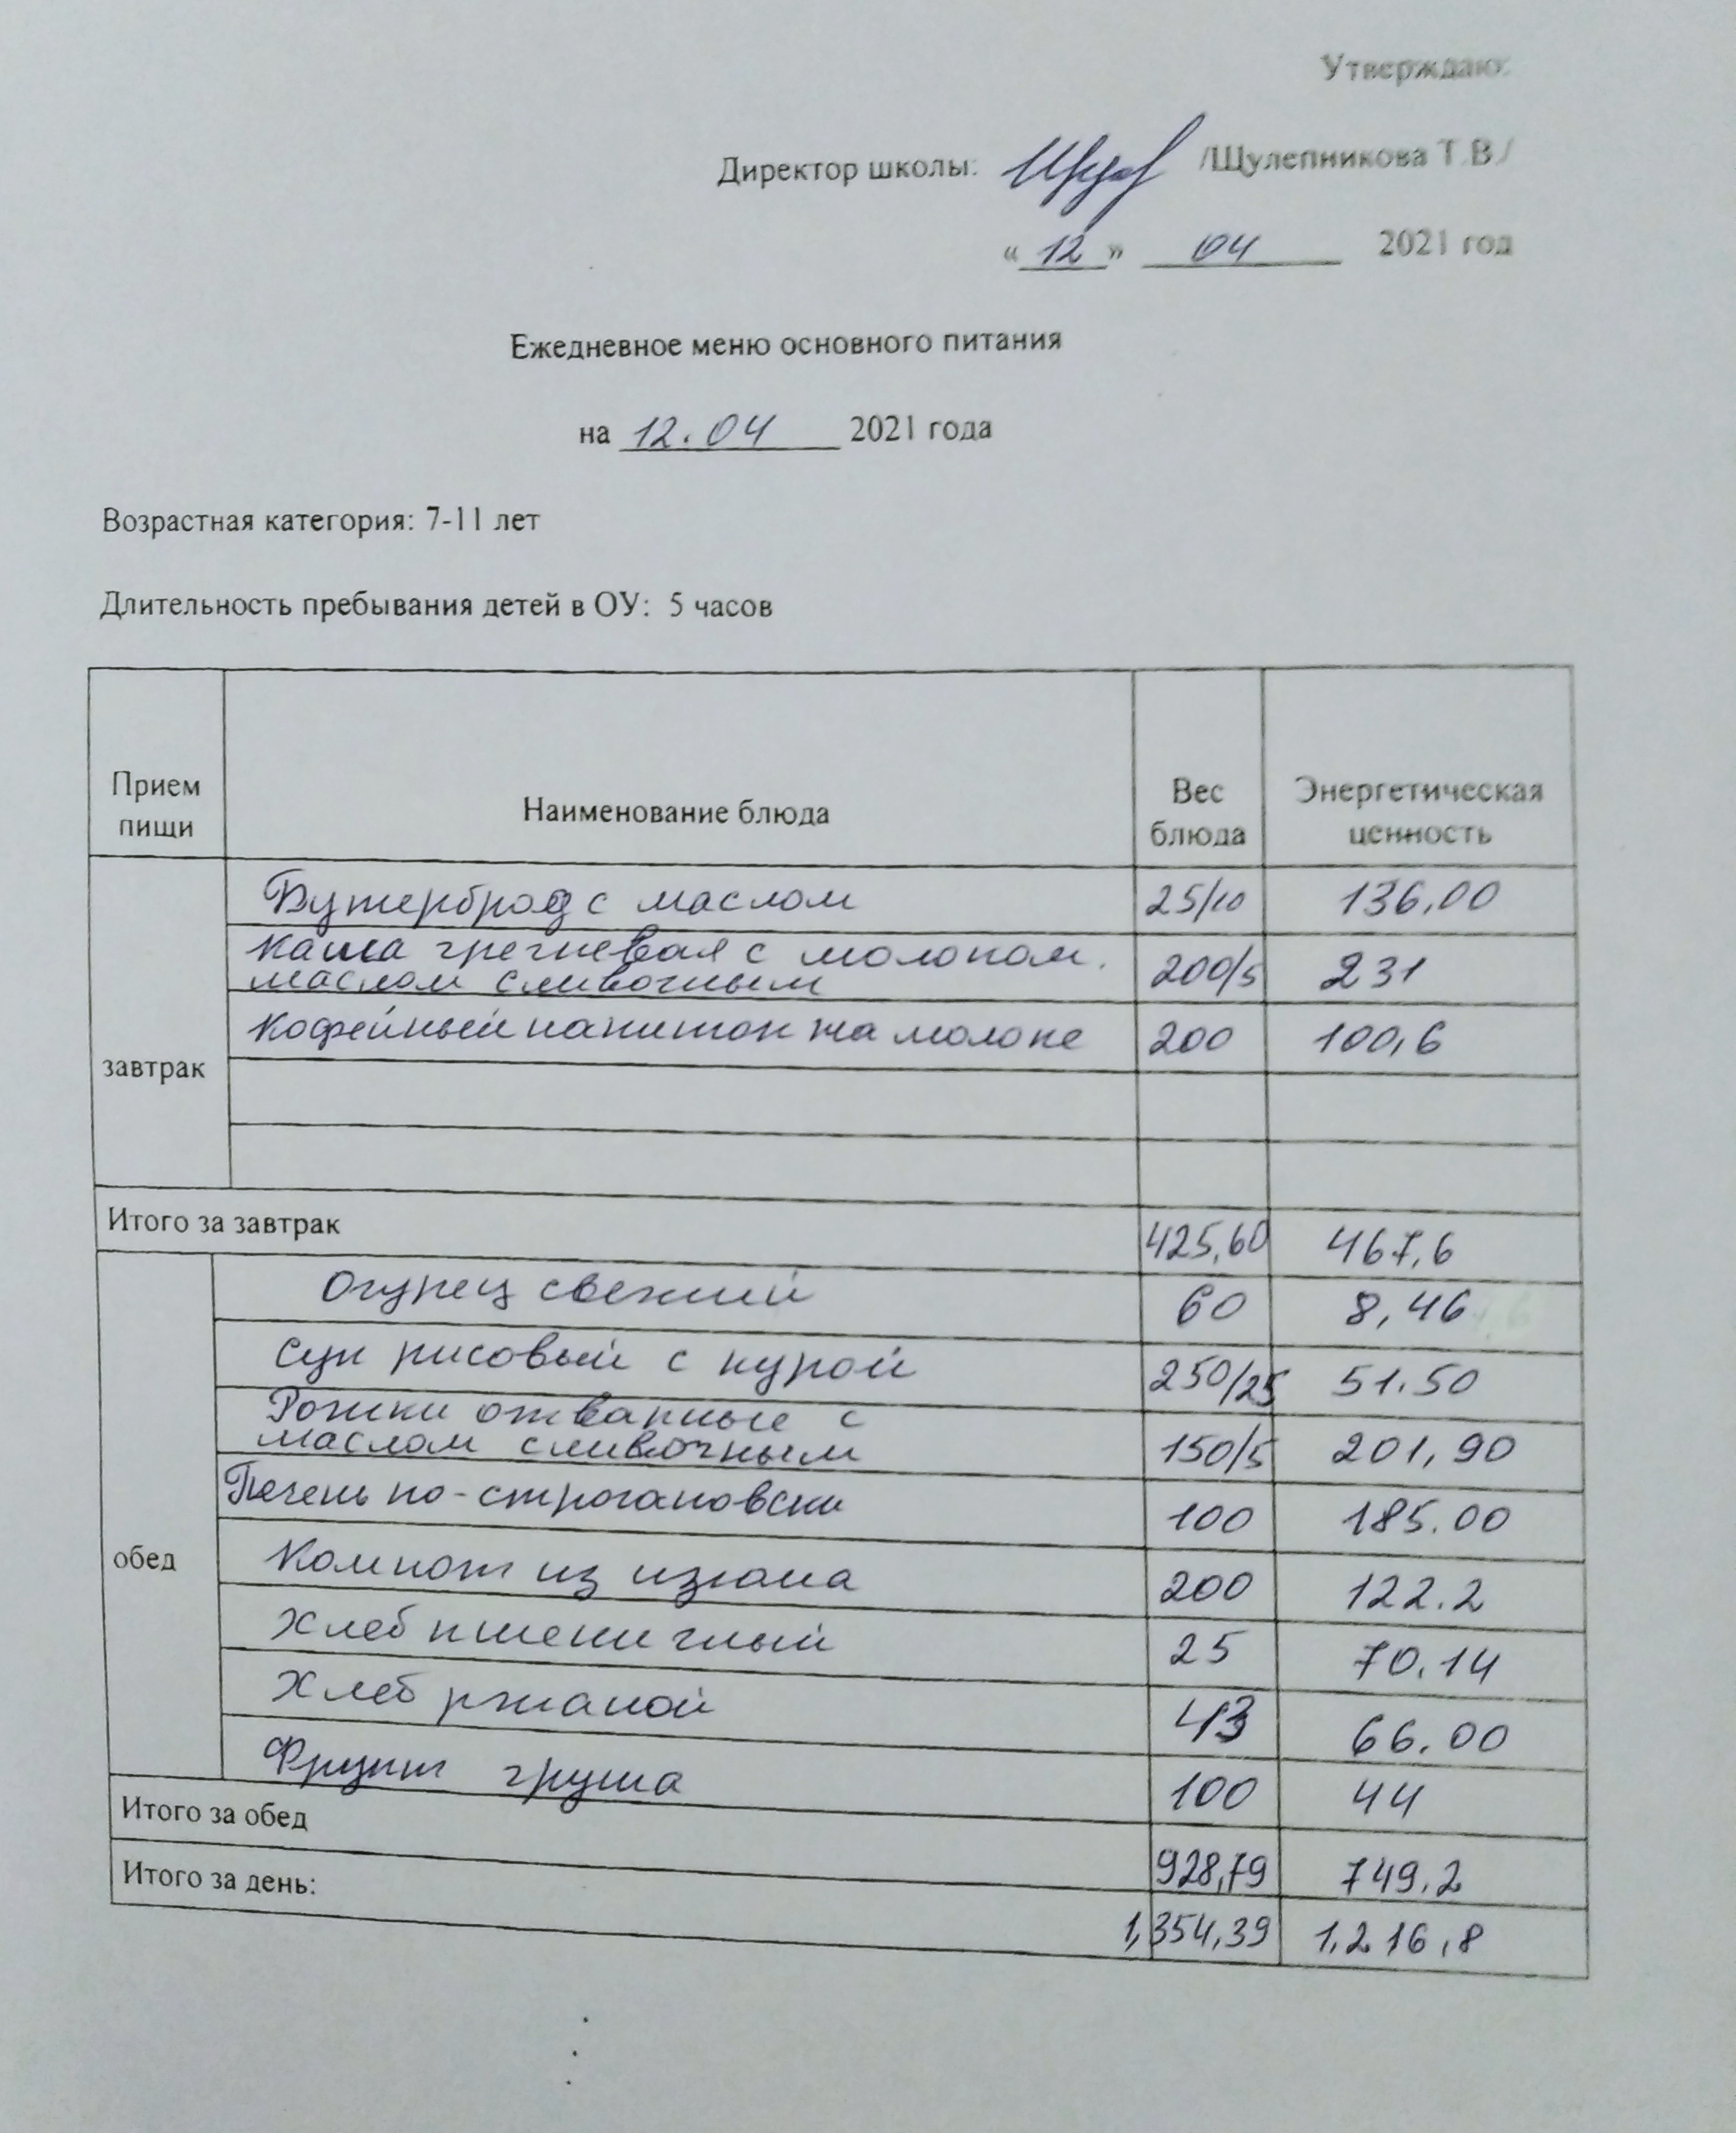 Утверждаю:
Директор школы: /Щулепникова Т.В./
« 12 » 04 2021 год
Ежедневное меню основного питания
на 12.04 2021 года
Возрастная категория: 7-11 лет
Длительность пребывания детей в ОУ: 5 часов
Прием пищи Наименование блюда Вес блюда Энергетическая ценность
завтрак
Бутерброд с маслом 25/10 136,00
Каша гречневая с молоком.
маслом сливочным 200/5 231
Кофейный напиток на молоке 200 100,6
Итого за завтрак 425,60 467,6
обед
Огурец свежий 60 8,46
Суп рисовый с курой 250/25 51.50
Рожки отварные с
маслом сливочным 150/5 201,90
Печень по-строгановски 100 185.00
Компот из изюма 200 122.2
Хлеб пшеничный 25 70.14
Хлеб ржаной 43 66.00
Фрукт груша 100 44
Итого за обед 928,79 749.2
Итого за день: 1,354,39 1.216,8